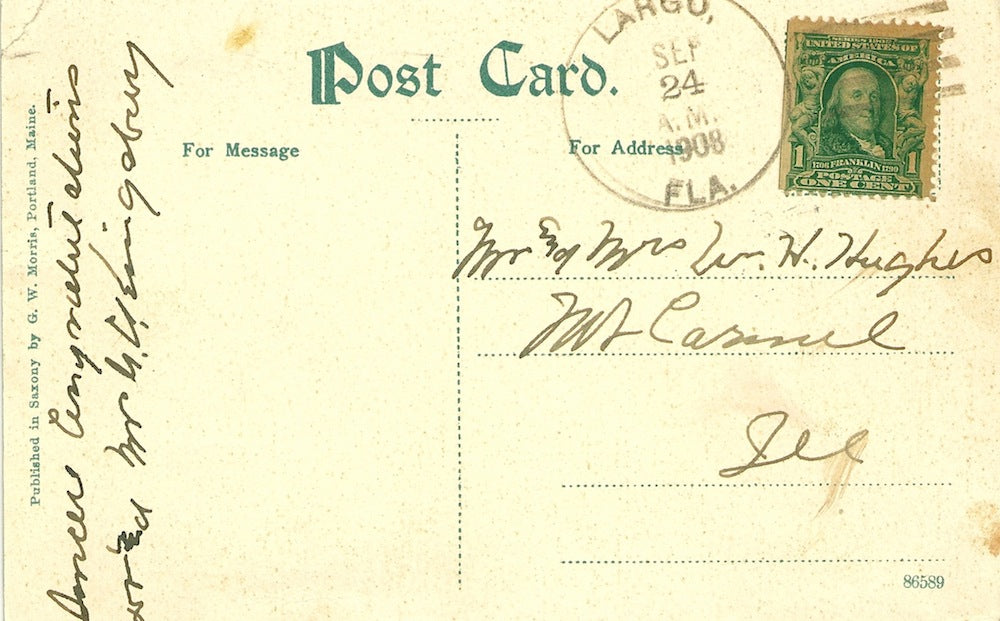 Post Card.
For Message
For Address
LARGO,
SEP
24
A.M.
1908
FLA.
SERIES 1902
UNITED STATES OF
AMERICA
1 1706 FRANKLIN 1790 1
POSTAGE
ONE CENT
Mr and Mrs W. H. Hughes
Mt Carmel
Ill
86589
Published in Saxony by G. W. Morris, Portland, Maine.
Congratulations
and Mr Kingsbury